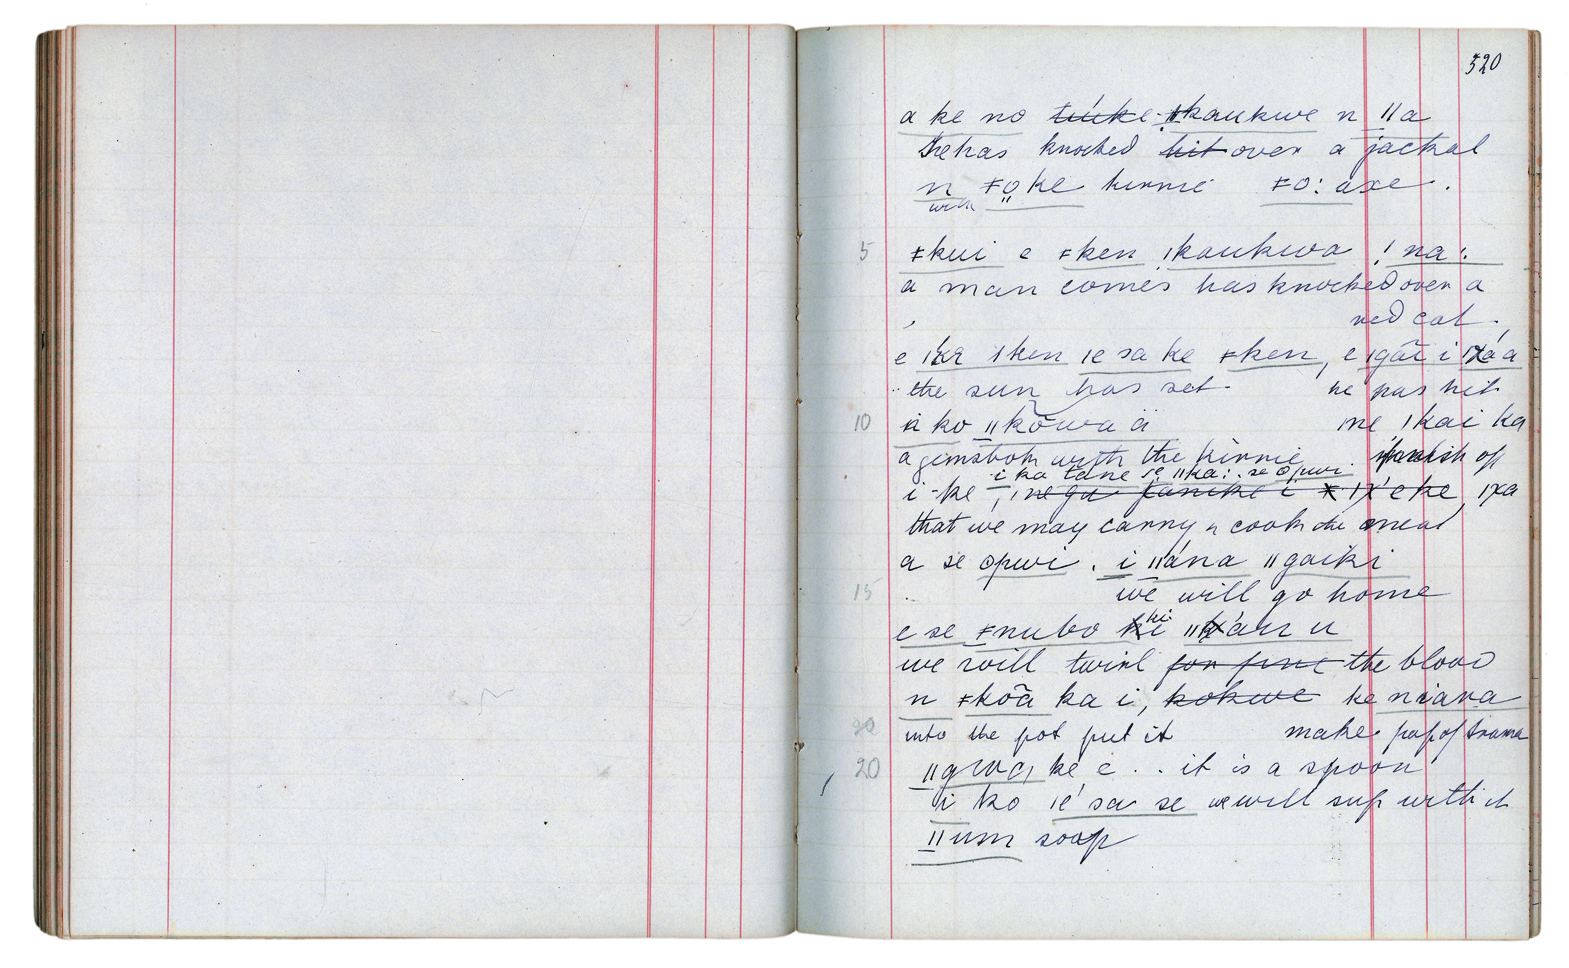 320
a ke no túúke ǂkaukwe n ǁa
She has knocked hit over a jackal
n ǂo̤ke kirrie ǂo: axe.
with
5 ǂkui e ǂken !kaukwa !na:
a man comes has knocked over a
red cat.
e ǀken ǀe sa ke ǂken, e ǀgãi i ǀxáa
the sun has set. he has hit
10 a ko ǁkõwa ä me ǀkai ka
a gemsbok with the kirrie. finish of
i ka tane se ǁka: se ʘpwi.
i-ke ǀxéke, ǀxa
that we may carry n cook the meat
a se ʘpwi. i ǁána ǁgaiki
15 we will go home
e se ǂnubo hi ǁán u
we will twirl for fine the blood
n ǂkoã ka i, kokwe ke niara
20 into the pot put it make pap of tsama
20 ǁgwa, ke e .. it is a spoon
i ko ǀé sa se we will sup with it
ǁum soap